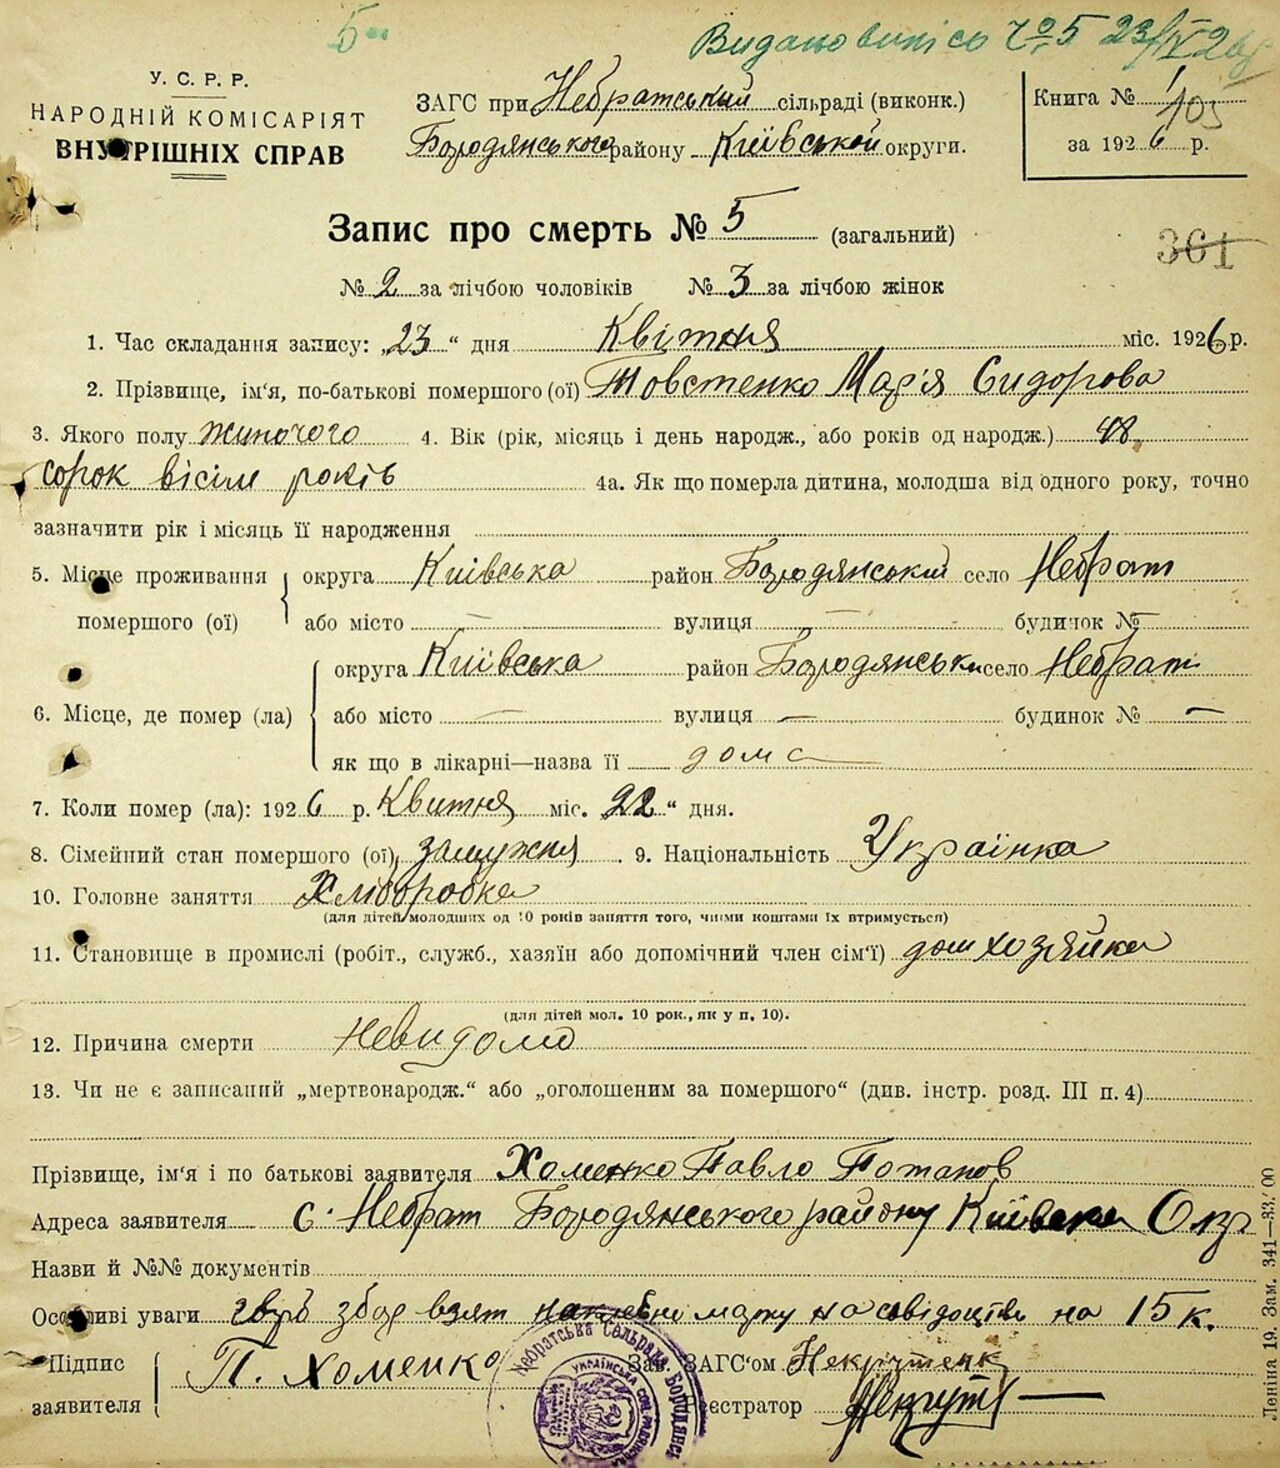 5
Видано випісь № 5 23/IV 26 р
У. С. Р. Р.
НАРОДНІЙ КОМІСАРІЯТ
ВНУТРІШНІХ СПРАВ
ЗАГС при Небратський сільраді (виконк.)
Бородянського району Київської округи.
Книга № 1
103
за 1926 р.
Запис про смерть № 5 (загальний)
361
№ 2 за лічбою чоловіків № 3 за лічбою жінок
1. Час складання запису: „23“ дня Квітня міс. 1926 р.
2. Прізвище, ім'я, по-батькові помершого (ої) Товстенко Мар'я Сидорова
3. Якого полу жиночого 4. Вік (рік, місяць і день народж., або років од народж.) 48
сорок вісім років 4а. Як що померла дитина, молодша від одного року, точно
зазначити рік і місяць її народження
5. Місце проживання помершого (ої) округа Київська район Бородянський село Небрат
або місто — вулиця — будинок № —
6. Місце, де помер (ла) округа Київська район Бородянськи село Небрат
або місто — вулиця — будинок № —
як що в лікарні—назва її дома
7. Коли помер (ла): 1926 р. Квитня міс. „22“ дня.
8. Сімейний стан помершого (ої) замужня. 9. Національність Українка
10. Головне заняття Хліборобка
(для дітей молодших од 10 років заняття того, чиїми коштами їх втримується)
11. Становище в промислі (робіт., служб., хазяїн або допомічний член сім'ї) дом хозяйка
(для дітей мол. 10 рок., як у п. 10).
12. Причина смерти Невидомо
13. Чи не є записаний „мертвонародж.“ або „оголошеним за помершого“ (див. інстр. розд. III п. 4)
Прізвище, ім'я і по батькові заявителя Хоменко Павло Потапов
Адреса заявителя с. Небрат Бородянського району Київська Окр
Назви й №№ документів
Особливі уваги збор взят марку на свідоцтві на 15 к.
Підпис заявителя П. Хоменко
Зав. ЗАГС'ом Некрутенк
Реєстратор Некрут
Небратська Сельрада Бородянс
УКРАЇНСЬКА СОЦ. РАДЯНСЬКА
Леніна 19. Зам. 341—33/00